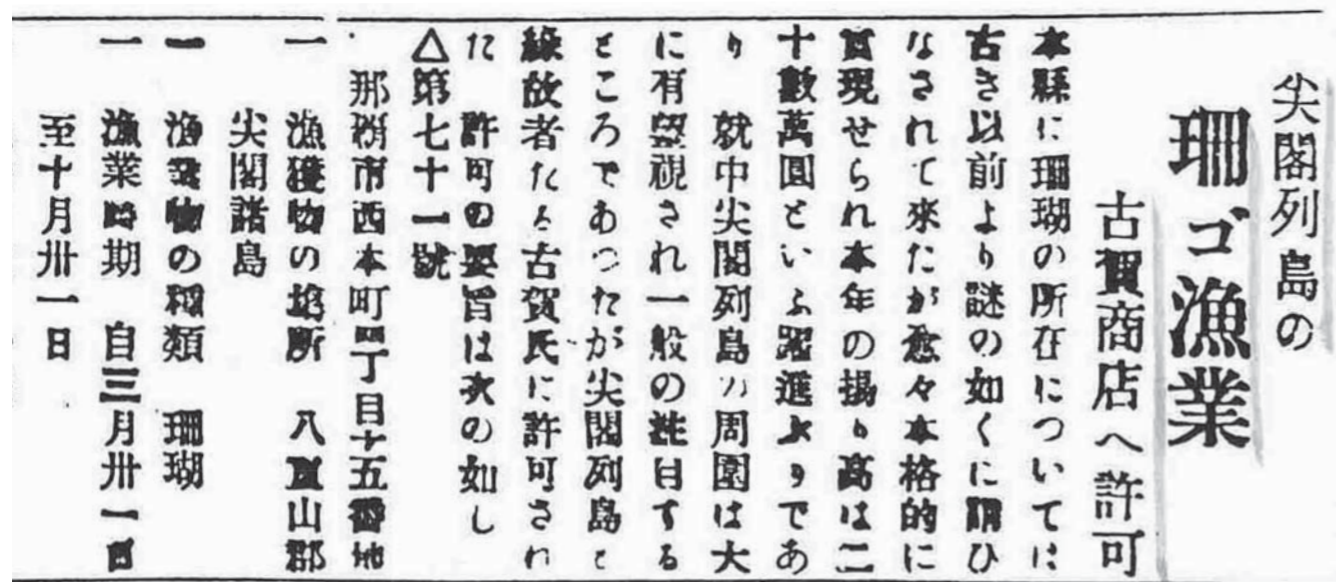 尖閣列島の
珊ゴ漁業
古賀商店へ許可
本縣に珊瑚の所在については
古き以前より謎の如くに謂ひ
なされて來たが愈々本格的に
實現せられ本年の揚り高は二
十數萬圓といふ躍進ぶりであ
り　就中尖閣列島の周圍は大
に有望視され一般の注目する
ところであつたが尖閣列島と
緣故者たる古賀氏に許可され
た　許可の要旨は次の如し
△第七十一號
那覇市西本町四丁目十五番地
一　漁獲物の塲所　八重山郡
尖閣諸島
一　漁獲物の種類　珊瑚
一　漁業時期　自三月卅一日
至十月卅一日